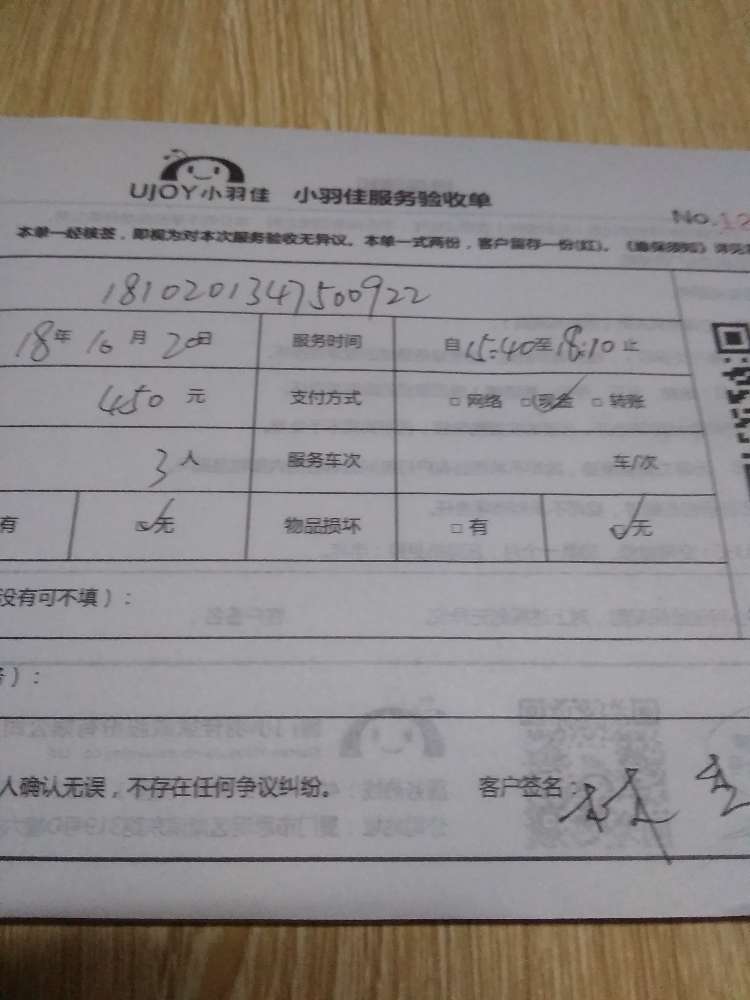 UJOY小羽佳 小羽佳服务验收单
No.12
本单一经核签，即视为对本次服务验收无异议。本单一式两份，客户留存一份(红)。
1810201347500922
18年 10月 20日 服务时间 自15:40至18:10止
450元 支付方式 □网络 □现金 □转账
3人 服务车次 车/次
有 □无 物品损坏 □有 □无
没有可不填）：
）：
人确认无误，不存在任何争议纠纷。 客户签名：林